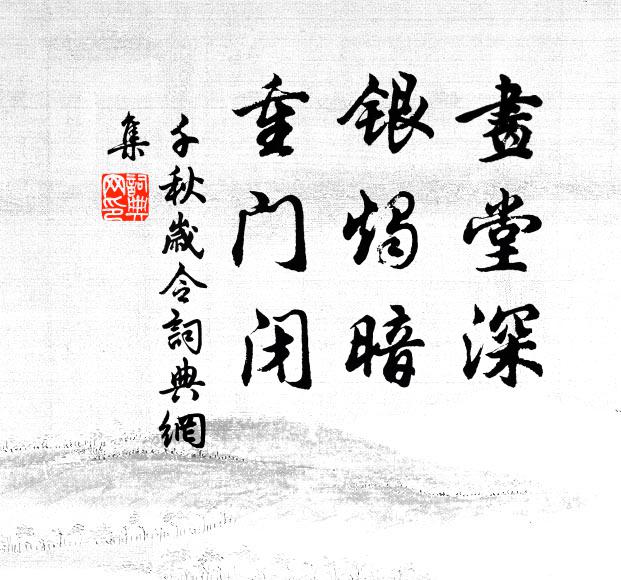 畫堂深
銀燭暗
重门闭
千秋歲令詞典網
集
詞典
网印